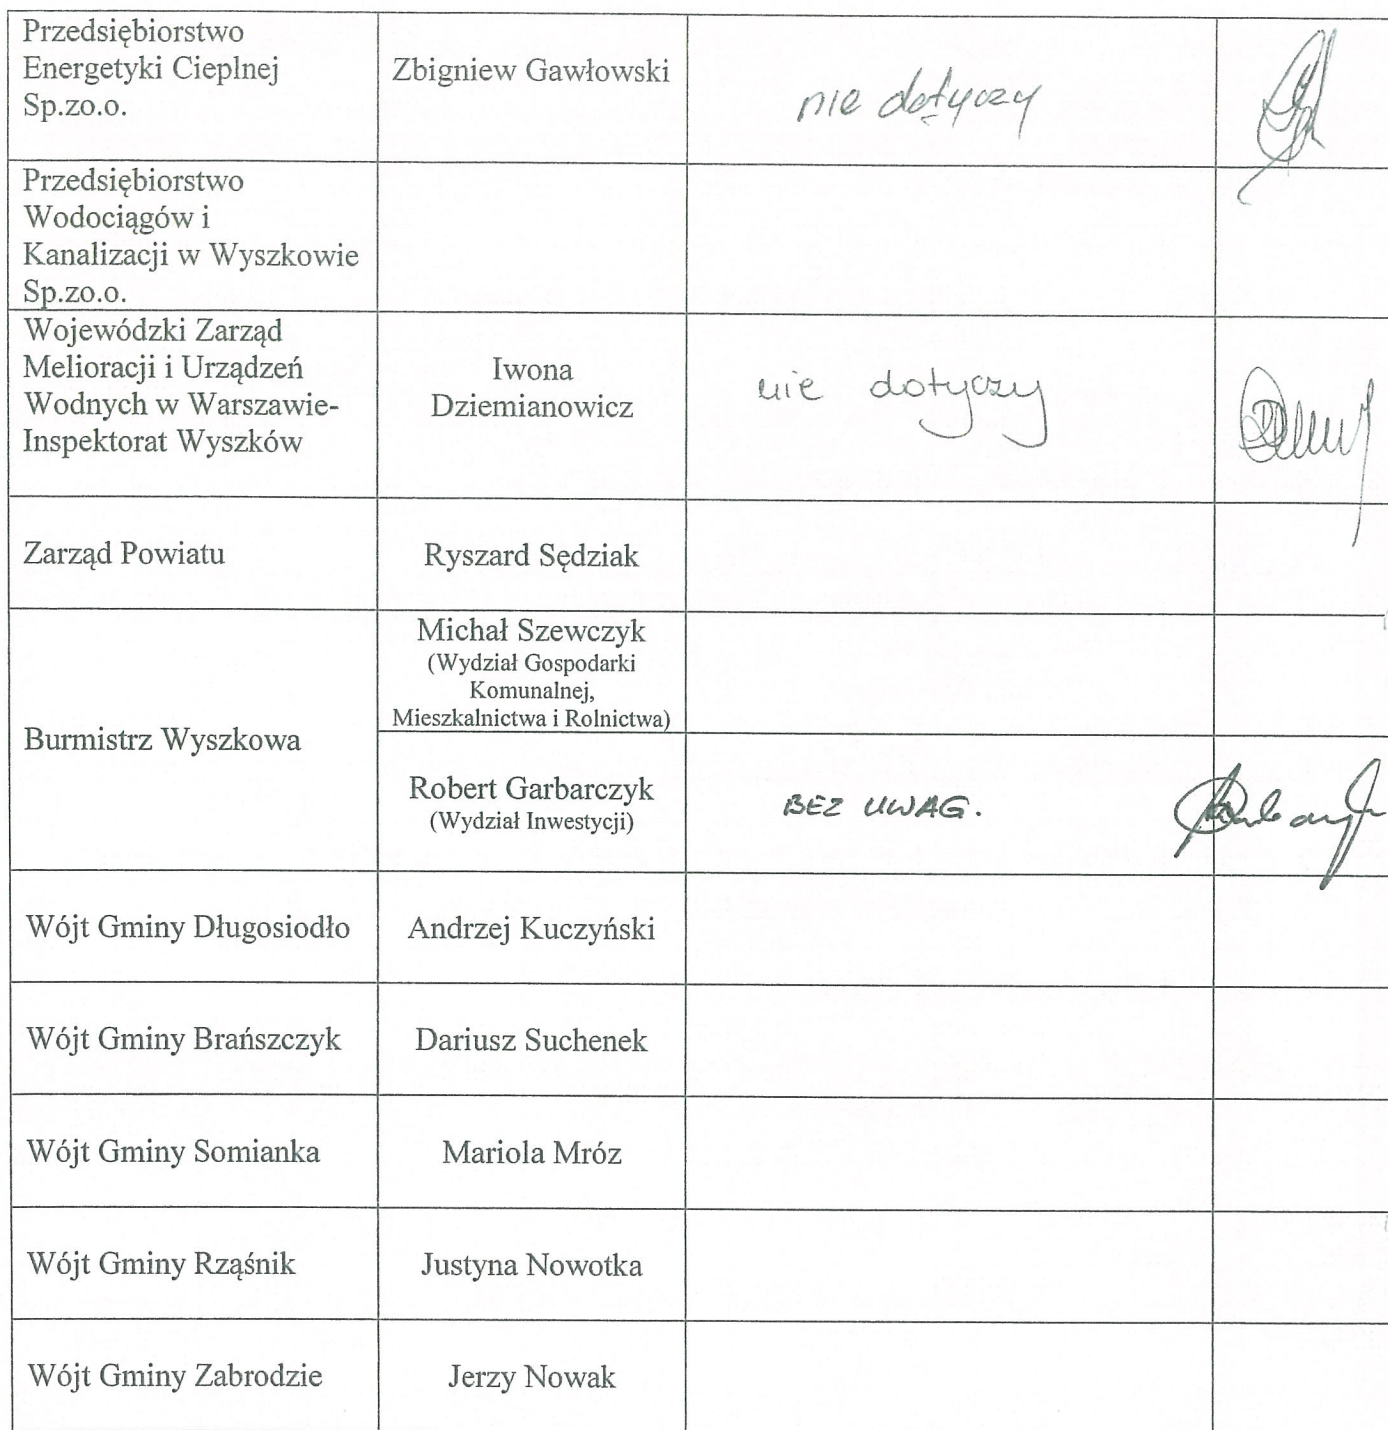 Przedsiębiorstwo
Energetyki Cieplnej
Sp.zo.o.
Zbigniew Gawłowski
nie dotyczy
Przedsiębiorstwo
Wodociągów i
Kanalizacji w Wyszkowie
Sp.zo.o.
Wojewódzki Zarząd
Melioracji i Urządzeń
Wodnych w Warszawie-
Inspektorat Wyszków
Iwona
Dziemianowicz
nie dotyczy
Zarząd Powiatu
Ryszard Sędziak
Burmistrz Wyszkowa
Michał Szewczyk
(Wydział Gospodarki
Komunalnej,
Mieszkalnictwa i Rolnictwa)
Robert Garbarczyk
(Wydział Inwestycji)
BEZ UWAG.
Wójt Gminy Długosiodło
Andrzej Kuczyński
Wójt Gminy Brańszczyk
Dariusz Suchenek
Wójt Gminy Somianka
Mariola Mróz
Wójt Gminy Rząśnik
Justyna Nowotka
Wójt Gminy Zabrodzie
Jerzy Nowak